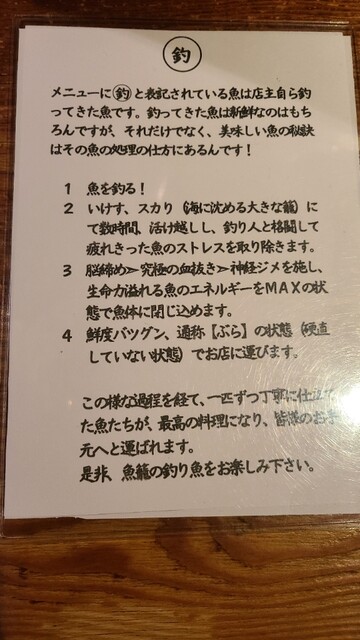 釣
メニューに釣と表記されている魚は店主自ら釣
ってきた魚です。釣ってきた魚は新鮮なのはもち
ろんですが、それだけでなく、美味しい魚の秘訣
はその魚の処理の仕方にあるんです！
1 魚を釣る！
2 いけす、スカリ（海に沈める大きな籠）に
て数時間、活け越しし、釣り人と格闘して
疲れきった魚のストレスを取り除きます。
3 脳締め➢究極の血抜き➢神経ジメを施し、
生命力溢れる魚のエネルギーをMAXの状
態で魚体に閉じ込めます。
4 鮮度バツグン、通称【ぶら】の状態（硬直
していない状態）でお店に運びます。
この様な過程を経て、一匹ずつ丁寧に仕立て
た魚たちが、最高の料理になり、皆様のお手
元へと運ばれます。
是非、魚籠の釣り魚をお楽しみ下さい。